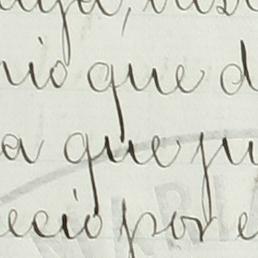 nio que d
a que ju
ecio por e